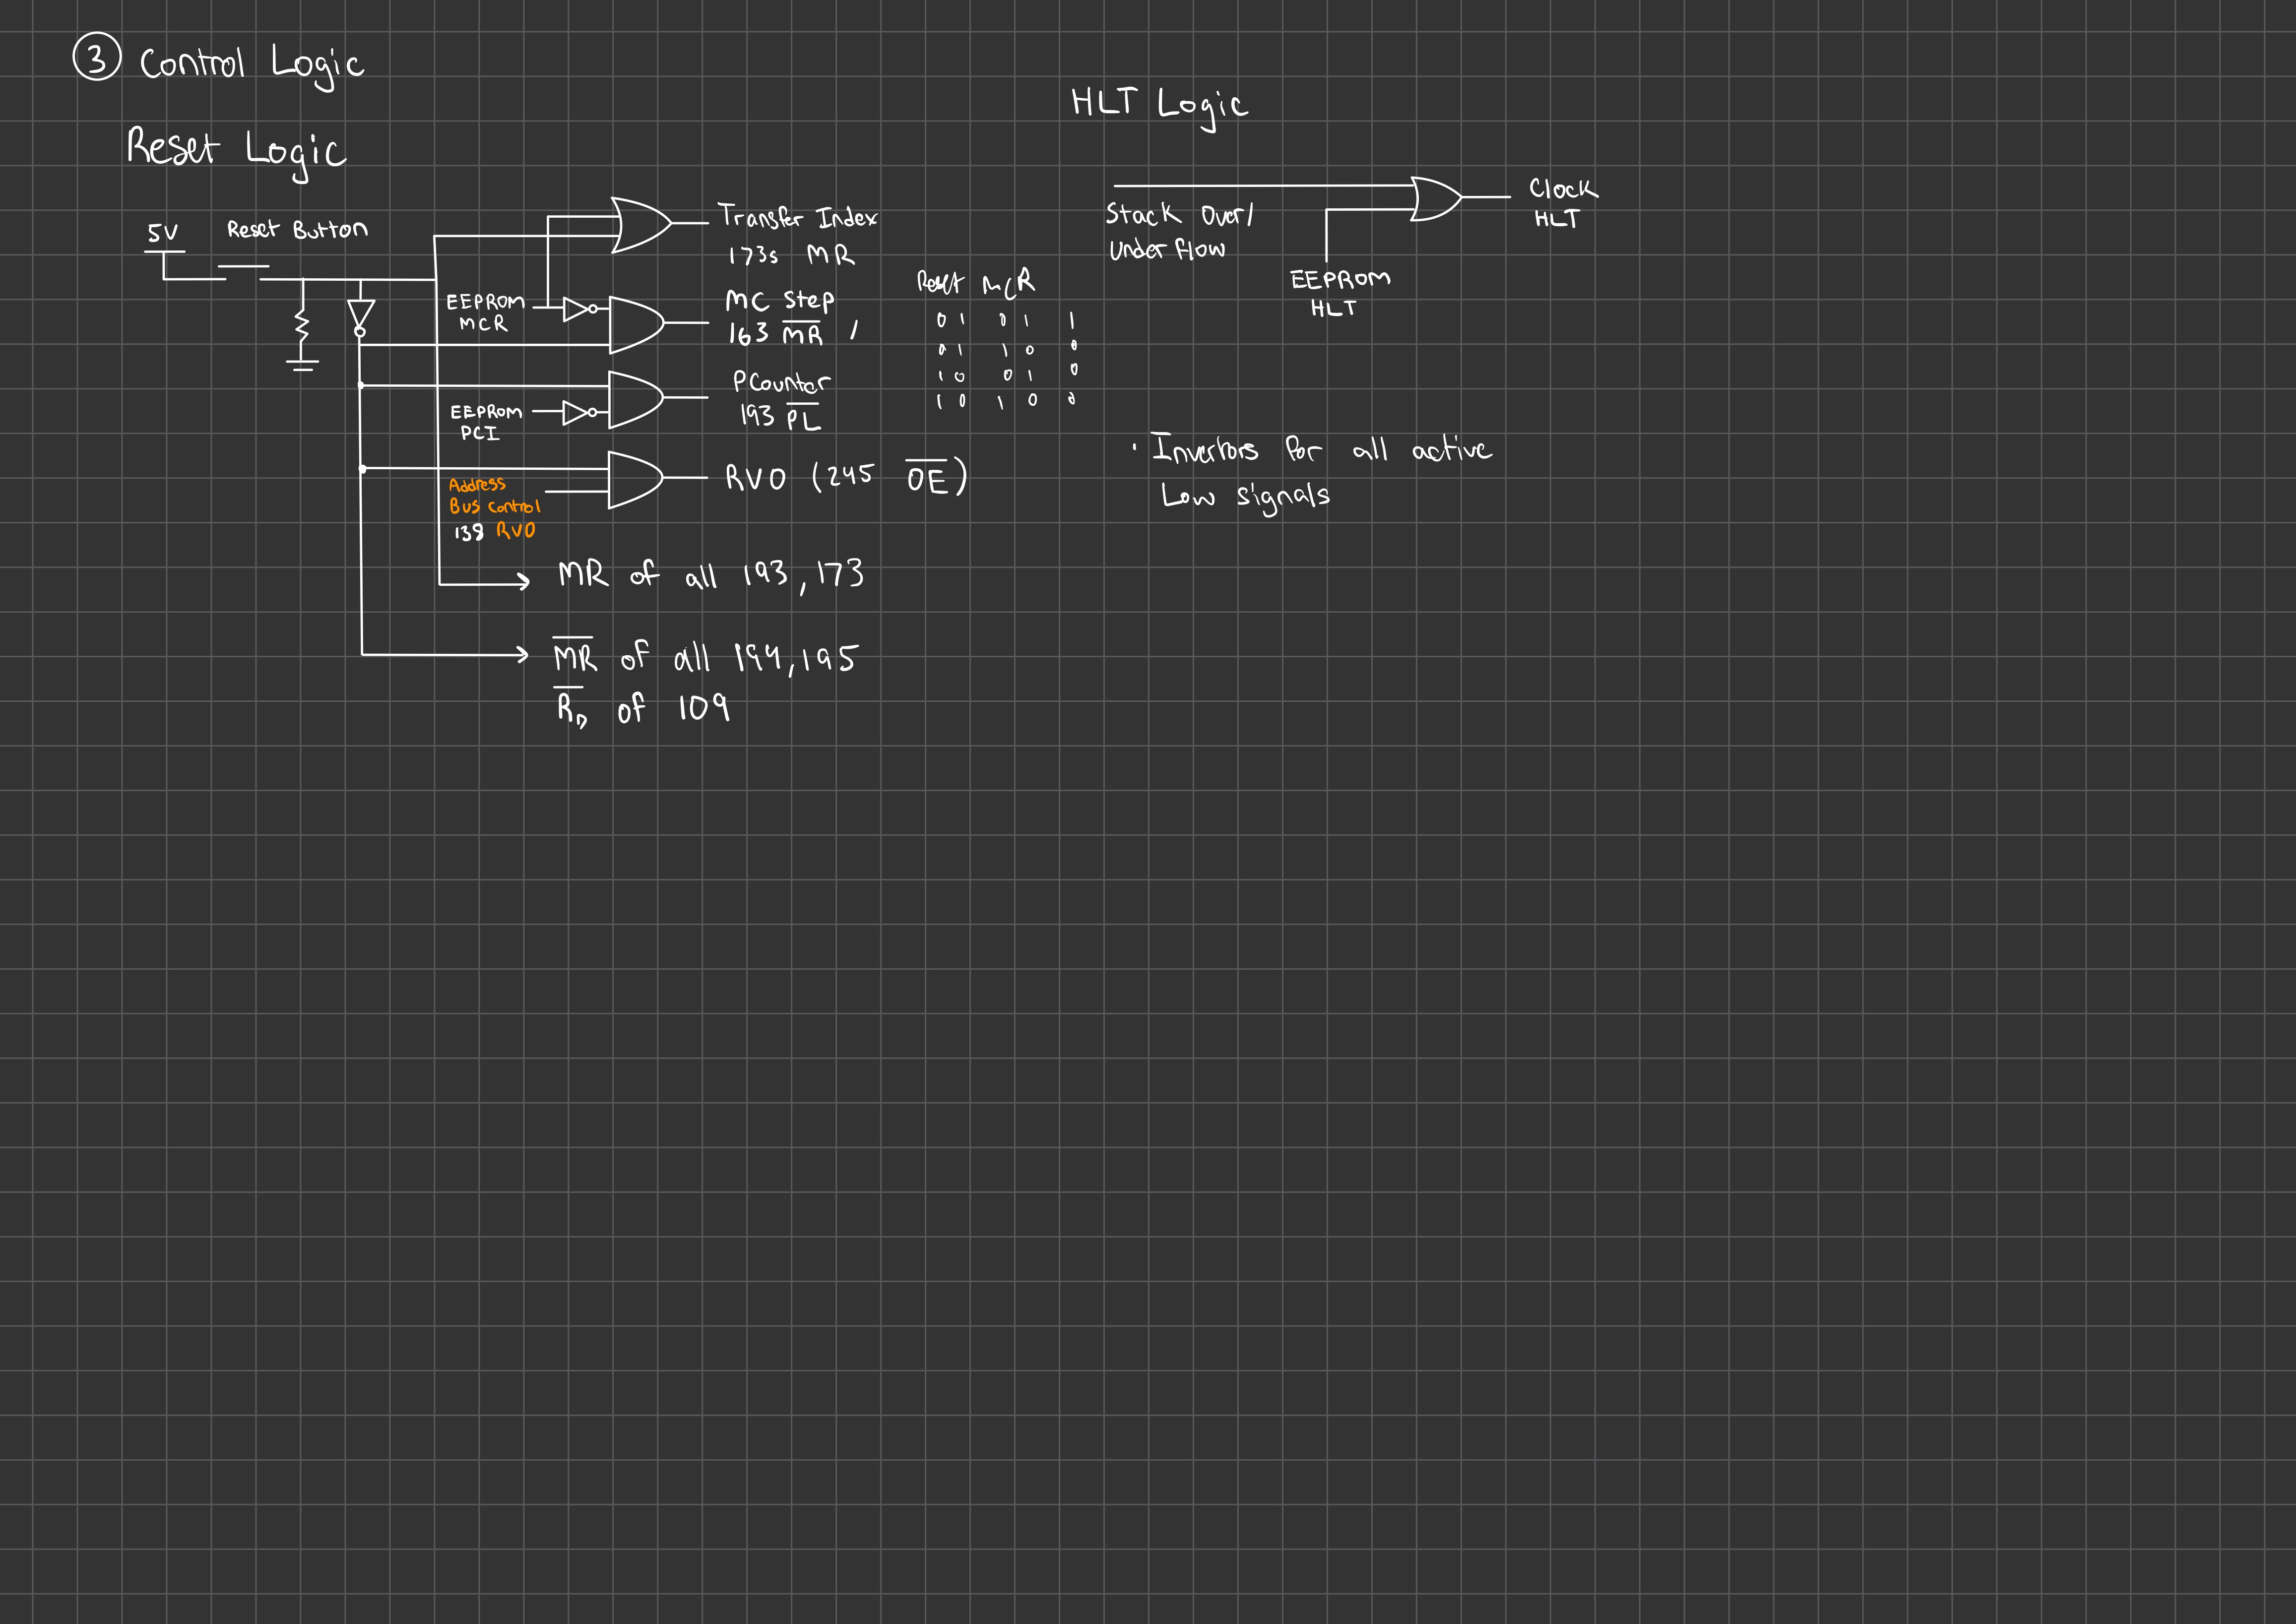 3 Control Logic
Reset Logic
5V
Reset Button
Transfer Index
173s MR
EEPROM
MCR
MC Step
163 MR
PCounter
193 PL
EEPROM
PCI
RVO (245 OE)
Address
Bus Control
138 RVO
MR of all 193, 173
MR of all 194, 195
RD of 109
Reset MCR
0 1 0 1 1
0 1 1 0 0
1 0 0 1 0
1 0 1 0 0
HLT Logic
Stack Over/
Underflow
EEPROM
HLT
Clock
HLT
· Invertors for all active
Low signals